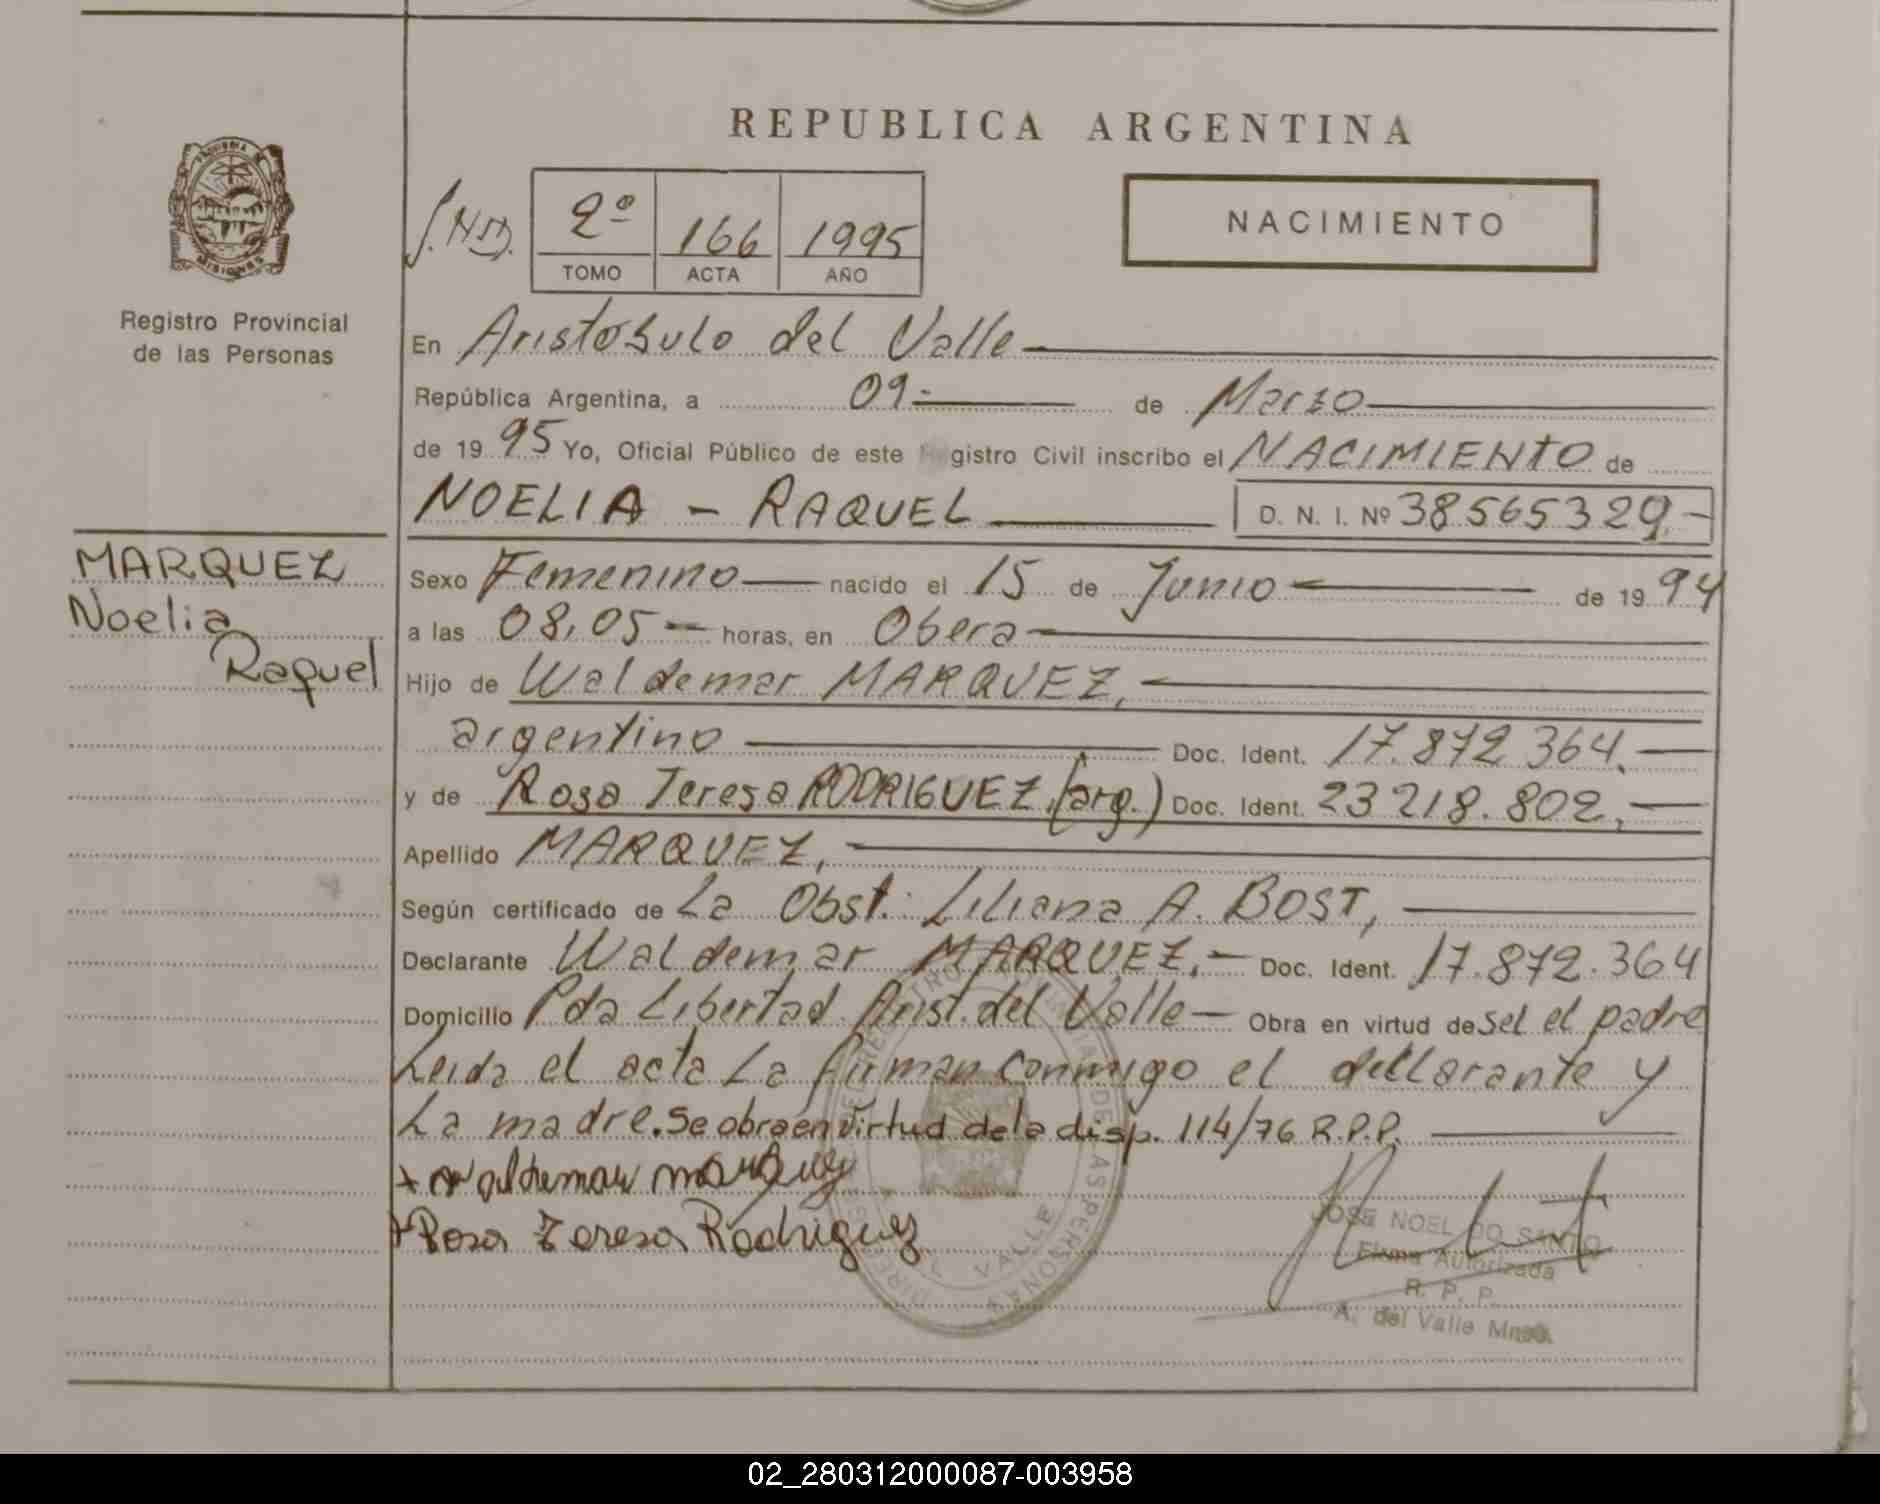 REPUBLICA ARGENTINA
2º 166 1995
TOMO ACTA AÑO
NACIMIENTO
MISIONES
Registro Provincial
de las Personas
En Aristóbulo del Valle
República Argentina, a 09 de Marzo
de 1995 Yo, Oficial Público de este Registro Civil inscribo el NACIMIENTO de
NOELIA - RAQUEL D. N. I. Nº 38565329.-
MARQUEZ
Noelia
Raquel
Sexo Femenino nacido el 15 de Junio de 1994
a las 08,05 horas, en Obera
Hijo de Waldemar MARQUEZ,
argentino Doc. Ident. 17.872.364.
y de Rosa Teresa RODRIGUEZ, (arg.) Doc. Ident. 23218.802,
Apellido MARQUEZ,
Según certificado de La Obst. Liliana A. BOST,
Declarante Waldemar MARQUEZ.- Doc. Ident. 17.872.364
Domicilio Pda Libertad. Arist. del Valle - Obra en virtud de sel el padre
Leida el acta La firman conmigo el declarante y
La madre. Se obra en virtud de la disp. 114/76 R.P.P.
+ Waldemar Marquez
+ Rosa Teresa Rodriguez
JOSE NOEL DO SANTO
Firma Autorizada
R. P. P.
A. del Valle Mnes.
02_280312000087-003958